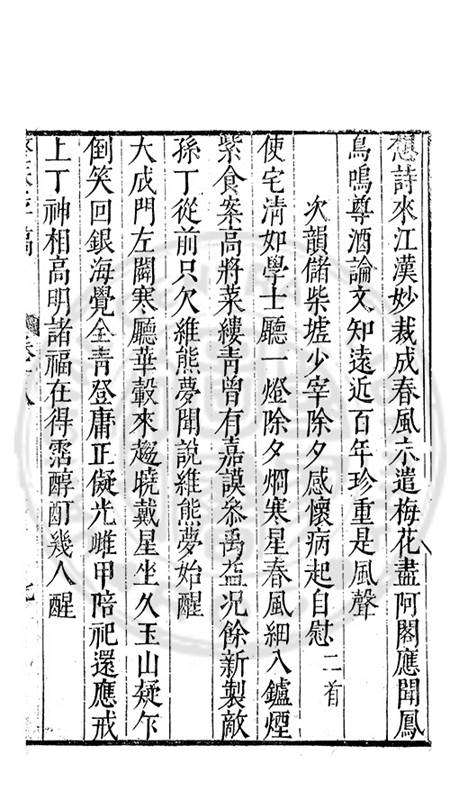 想詩來江漢妙裁成春風示遣梅花盡阿閣應聞鳳
鳥鳴尊酒論文知遠近百年珍重是風聲
次韻儲柴墟少宰除夕感懷病起自慰二首
使宅清如學士廳一燈除夕烱寒星春風細入鑪煙
紫食案高將菜縷青曾有嘉謨參禹益况餘新製敵
孫丁從前只欠維熊夢聞說維熊夢始醒
大成門左闢寒廳華轂來趨曉戴星坐久玉山疑乍
倒笑回銀海覺全青登庸正儗光雌甲陪祀還應戒
上丁神相高明諸福在得霑酩酊幾人醒
卷十八